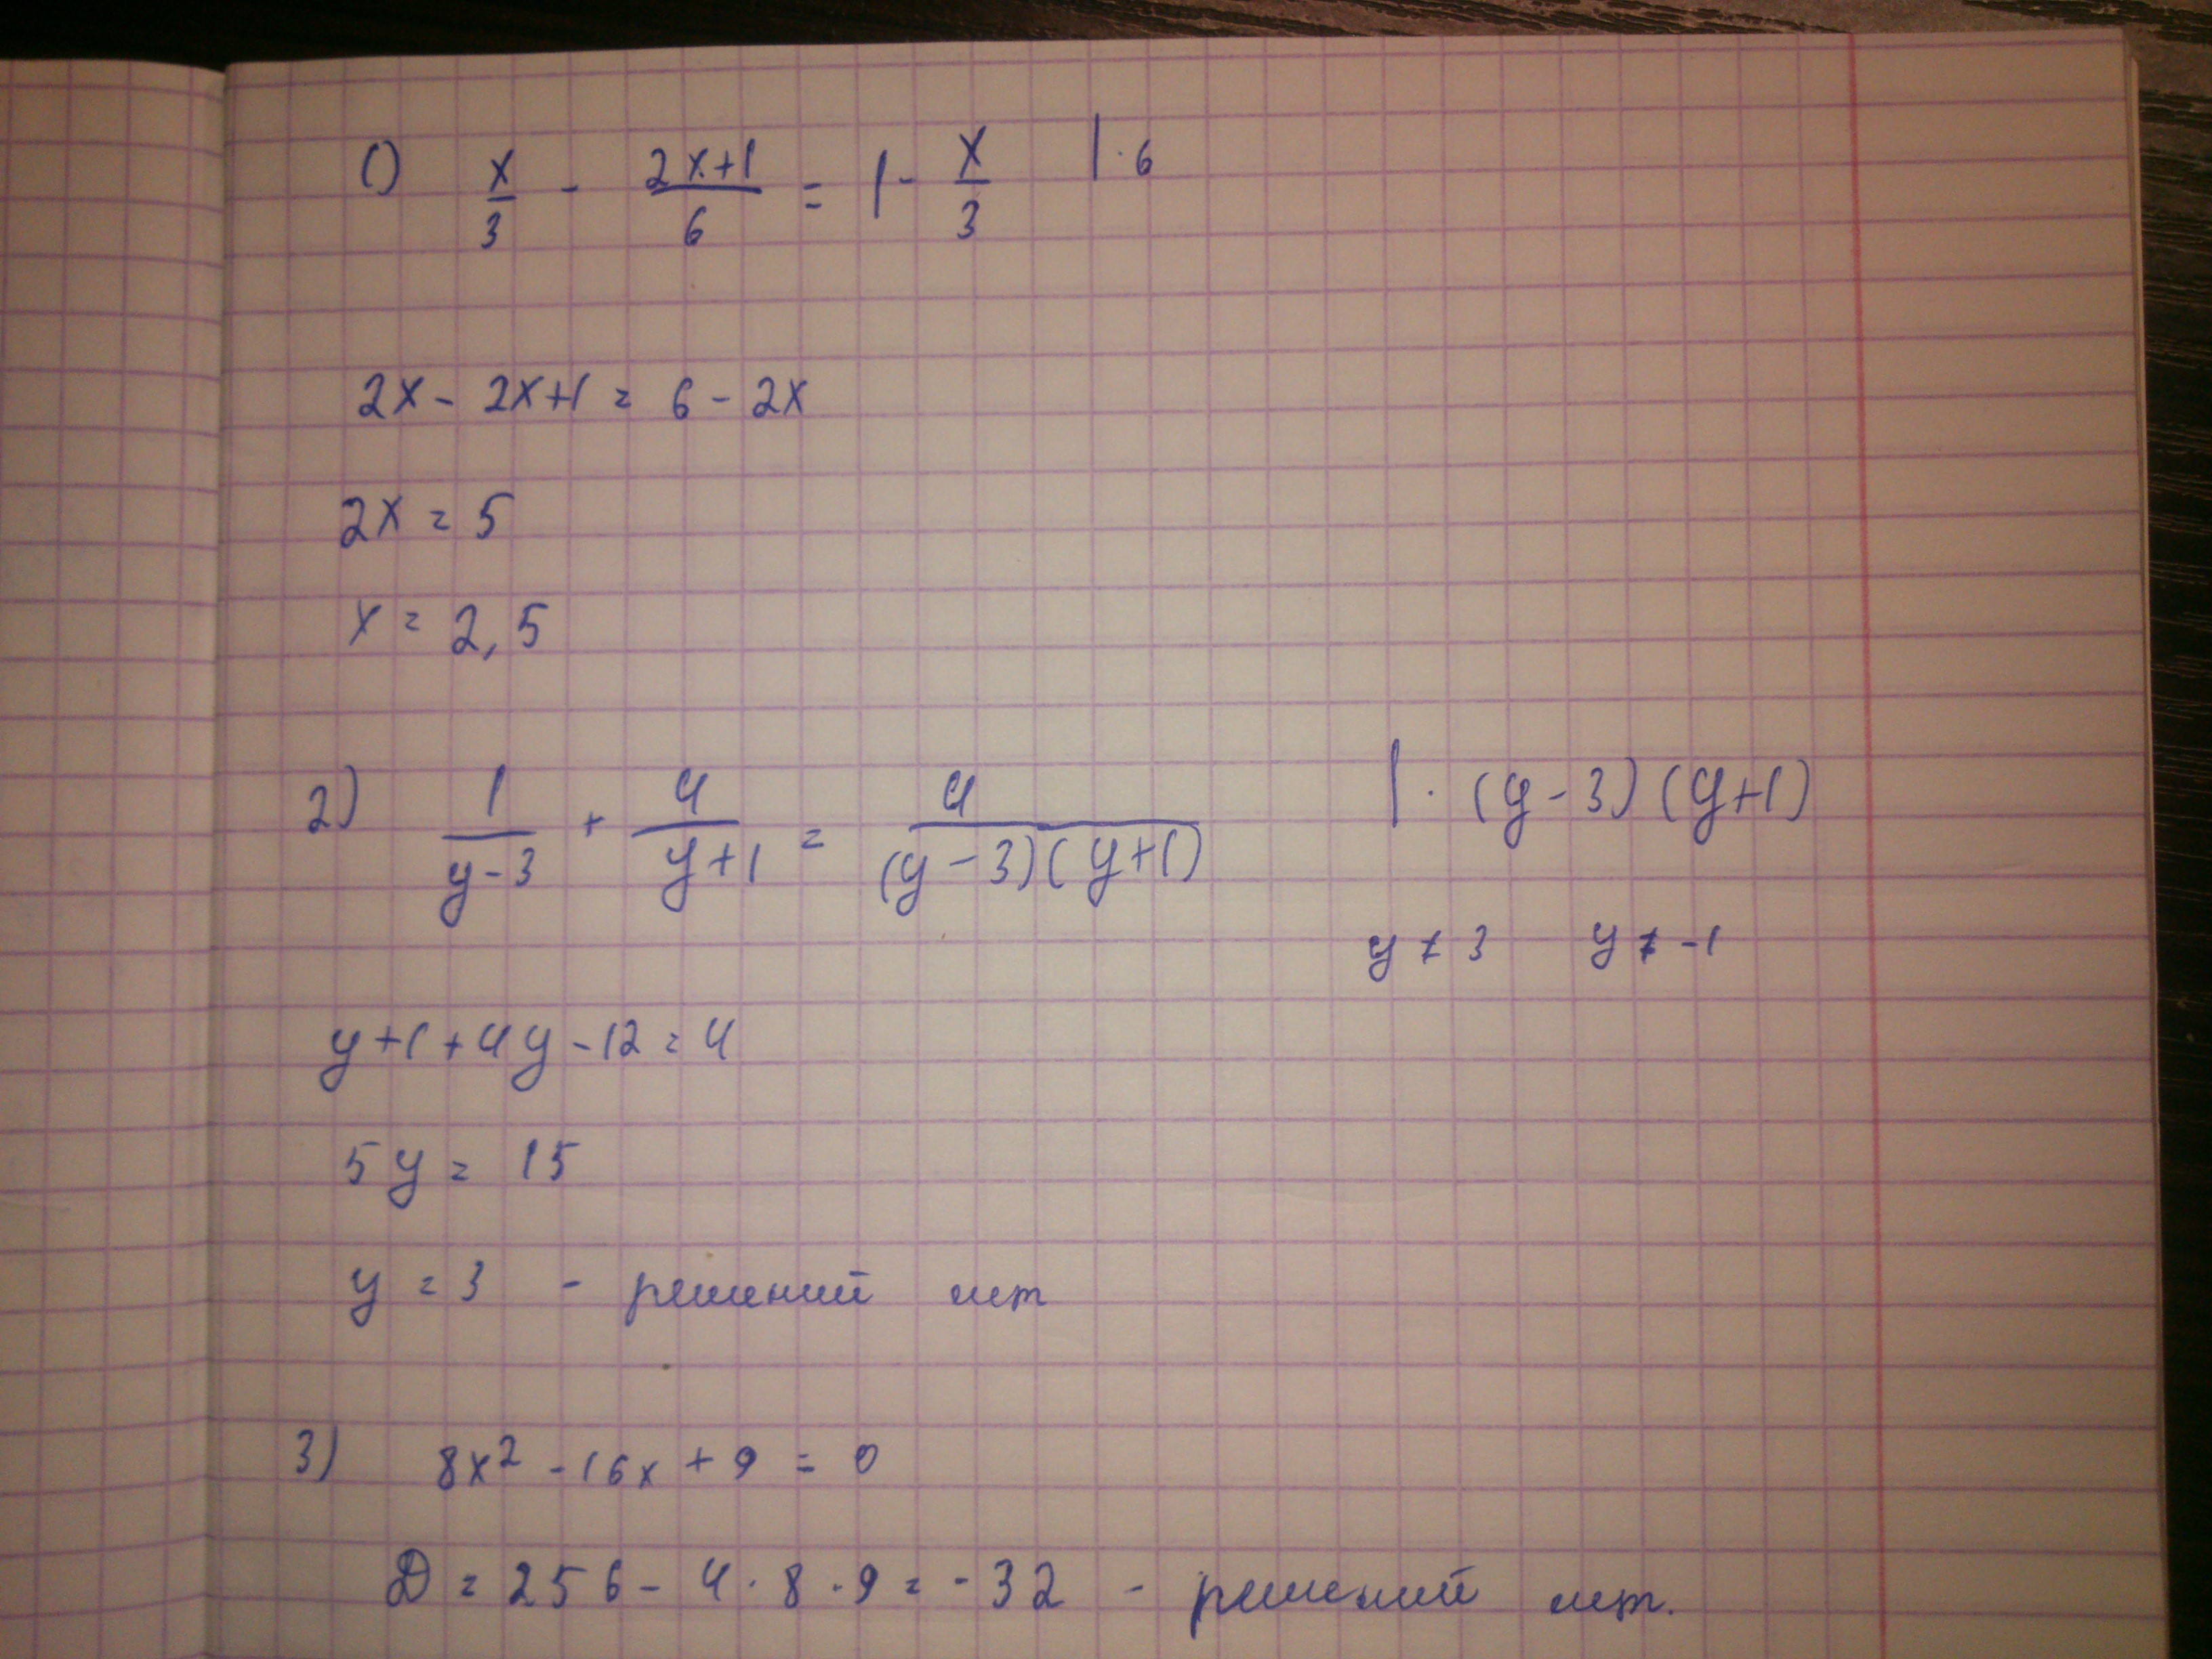 1) x/3 - (2x+1)/6 = 1 - x/3 | · 6
2x - 2x+1 = 6 - 2x
2x = 5
x = 2,5
2) 1/(y-3) + 4/(y+1) = 4/((y-3)(y+1)) | · (y-3)(y+1)
y ≠ 3 y ≠ -1
y+1+4y-12=4
5y = 15
y = 3 - решений нет
3) 8x² - 16x + 9 = 0
D = 256 - 4 · 8 · 9 = -32 - решений нет.